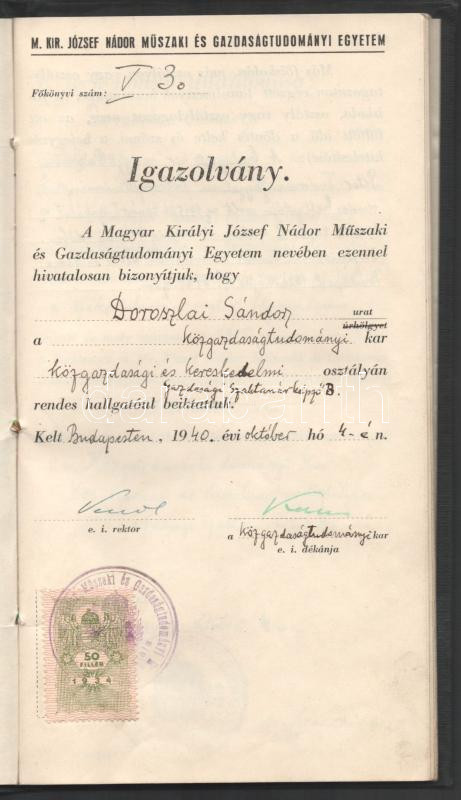 M. KIR. JÓZSEF NÁDOR MŰSZAKI ÉS GAZDASÁGTUDOMÁNYI EGYETEM
Főkönyvi szám: V 30
Igazolvány.
A Magyar Királyi József Nádor Műszaki
és Gazdaságtudományi Egyetem nevében ezennel
hivatalosan bizonyítjuk, hogy
Doroszlai Sándor urat
úrhölgyet
a közgazdaságtudományi kar
közgazdasági és kereskedelmi osztályán
gazdasági szaktanárképző B.
rendes hallgatóul beiktattuk.
Kelt Budapesten, 1940. évi október hó 4-én.
e. i. rektor
a közgazdaságtudományi kar
e. i. dékánja
Műszaki és Gazdaságtudományi
50
FILLÉR
1934
darabanth